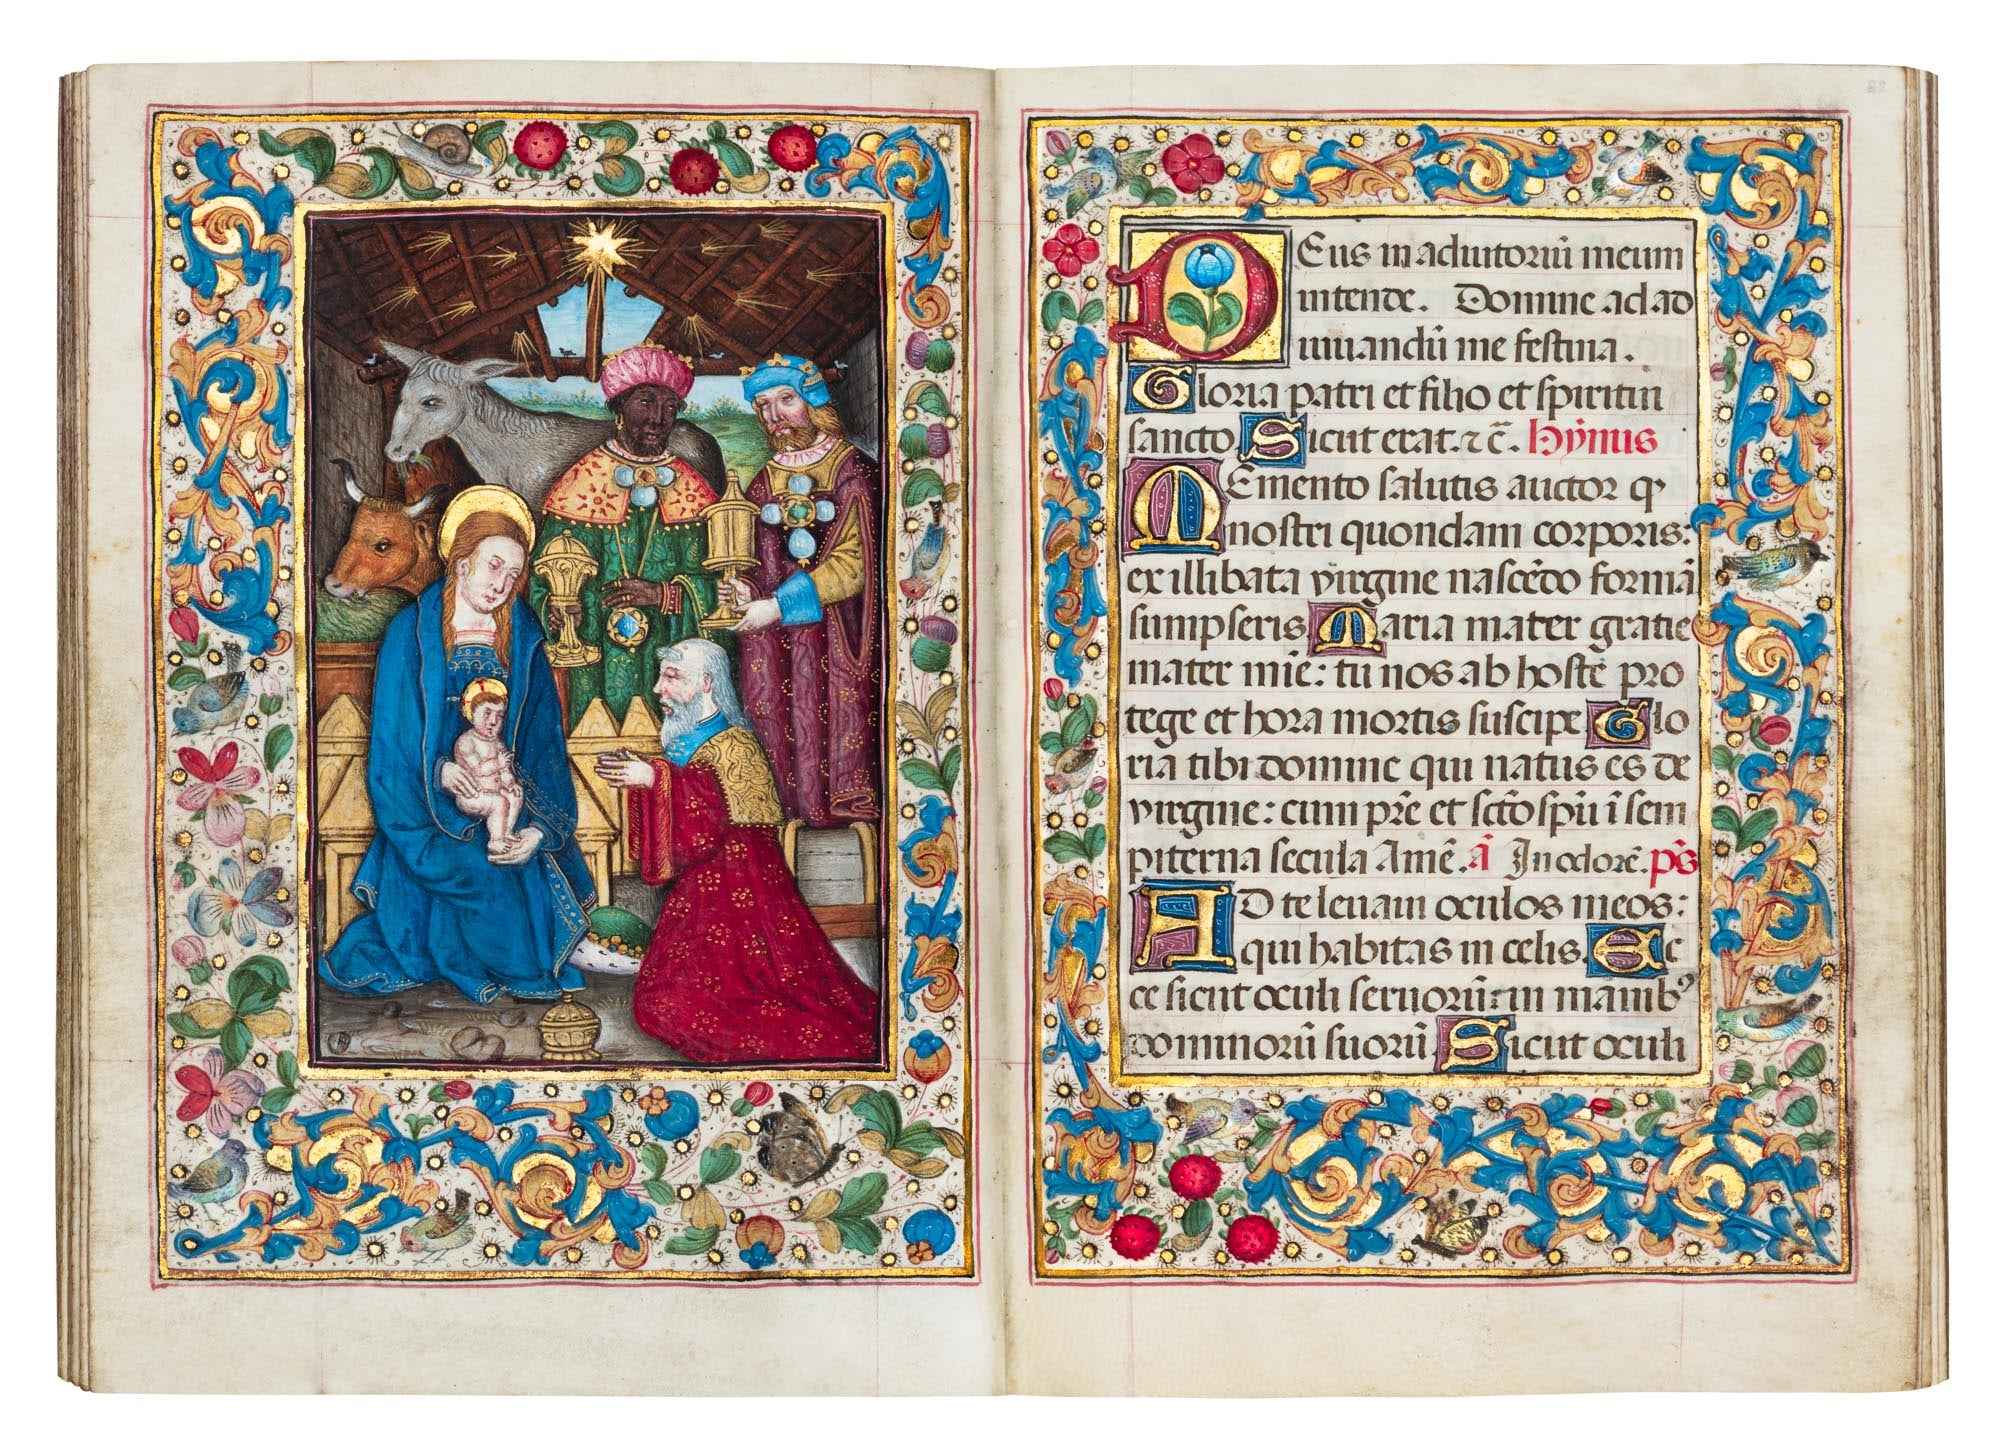 DEus in adiutoriū meum
intende. Domine ad ad
iuuandū me festina.
Gloria patri et filio et spiritui
sancto Sicut erat. ⁊ c̄. Hȳnus
MEmento salutis auctor ꝙ
nostri quondam corporis:
ex illibata virgine nascēdo formā
sumpseris Maria mater gratie
mater mīe: tu nos ab hoste pro
tege et hora mortis suscipe Glo
ria tibi domine qui natus es de
virgine: cum pr̄e et sc̄to spū ī sem
piterna secula Amē. ā In odorē. p̄s
AD te leuaui oculos meos:
qui habitas in celis. Ec
ce sicut oculi seruorū: in manibꝰ
dominorū suorū Sicut oculi